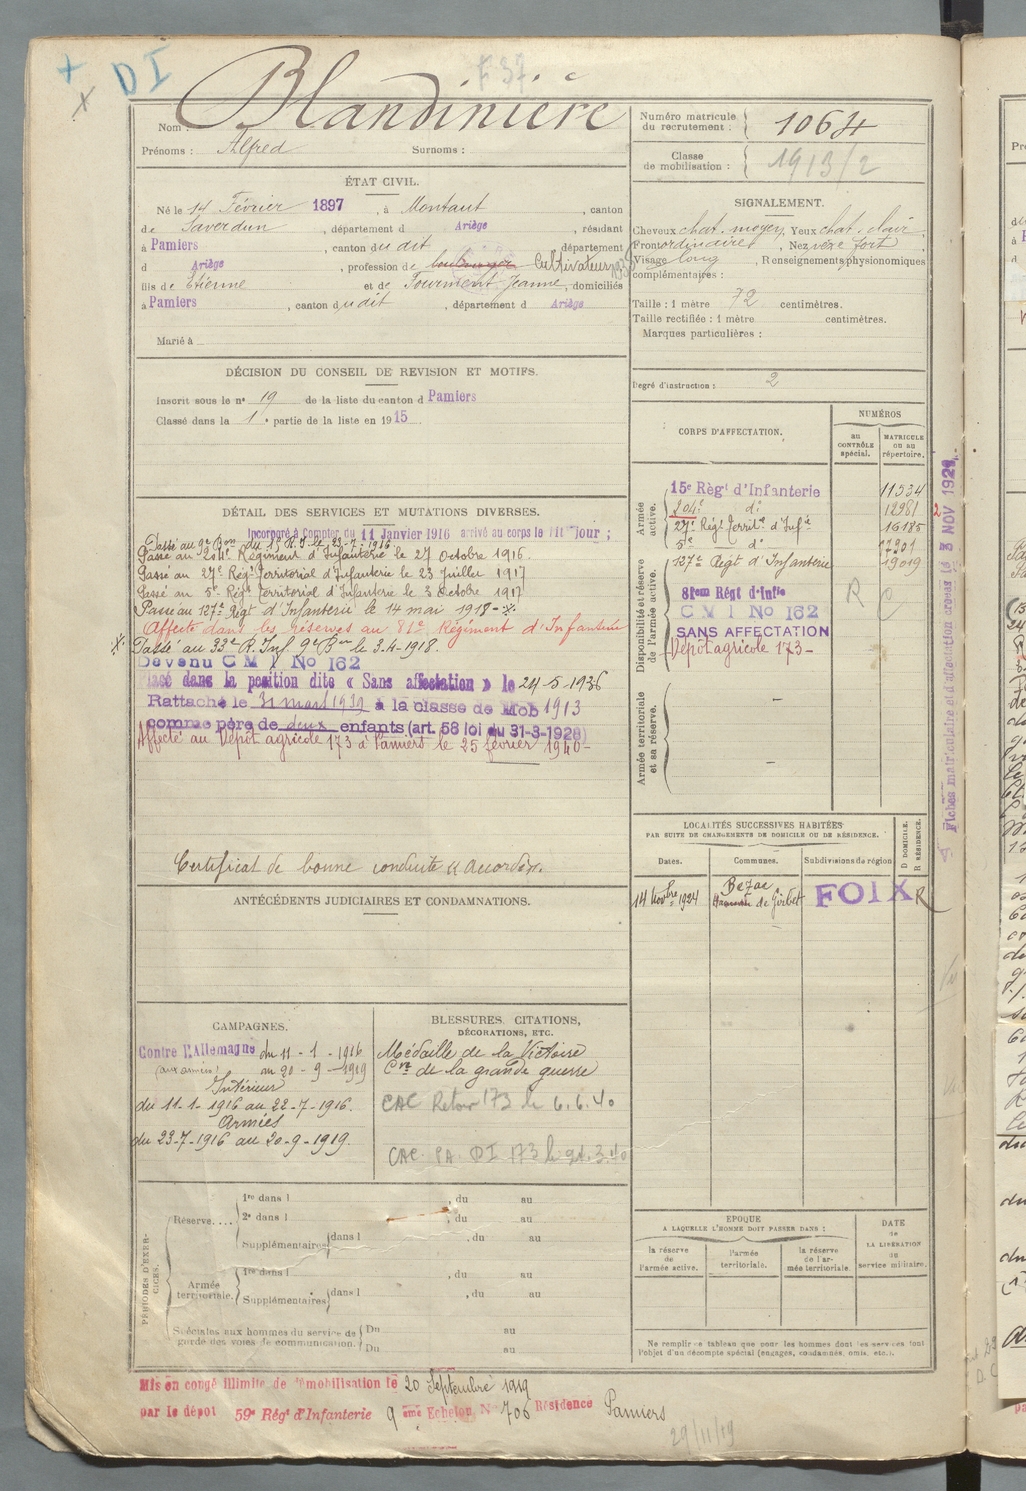 + D I
x
F 37
Nom : Blandinière
Prénoms : Alfred Surnoms :
Numéro matricule du recrutement : 1064
Classe de mobilisation : 1913/2
ÉTAT CIVIL.
Né le 14 Février 1897, à Montaut, canton
de Saverdun, département d Ariège, résidant
à Pamiers, canton dudit, département
d Ariège, profession de Cultivateur
fils de Etienne et de Tourment Jeanne, domiciliés
à Pamiers, canton dudit, département d Ariège
Marié à
SIGNALEMENT.
Cheveux chat. moyen, Yeux chat. clair
Front ordinaire, Nez fort
Visage long, Renseignements physionomiques
complémentaires :
Taille : 1 mètre 72 centimètres.
Taille rectifiée : 1 mètre centimètres.
Marques particulières :
Degré d'instruction : 2
DÉCISION DU CONSEIL DE REVISION ET MOTIFS.
Inscrit sous le n° 19 de la liste du canton d Pamiers
Classé dans la 1e partie de la liste en 1915.
CORPS D'AFFECTATION.
NUMÉROS
au CONTRÔLE spécial.
MATRICULE ou au répertoire.
Armée active.
15e Régt d'Infanterie 11534
204e do 12981
27e Régt Territ. d'Infie 16185
5e do
Disponibilité et réserve de l'armée active.
127e Régt d'Infanterie 19019
81em Régt d'Infie
R C
C M I No 162
SANS AFFECTATION
Dépôt agricole 173 -
Armée territoriale et sa réserve.
Fiches matriculaire et d'affectation créées le 3 NOV 1921
DÉTAIL DES SERVICES ET MUTATIONS DIVERSES.
Incorporé à Compter du 11 Janvier 1916 arrivé au corps le dit jour ;
Passé au 9e Bon du 15 R.I. le 23-7-1916
Passé au 204e Régiment d'Infanterie le 27 Octobre 1916.
Passé au 27e Régt Territorial d'Infanterie le 23 Juillet 1917
Passé au 5e Régt Territorial d'Infanterie le 3 Octobre 1917
Passé au 127e Régt d'Infanterie le 14 mai 1918 -
Affecté dans les réserves au 81e Régiment d'Infanterie
Passé au 33e R. Inf. 9e Bon le 3-4-1918.
Devenu C M I No 162
Placé dans la position dite « Sans affectation » le 24-5-1936
Rattaché le 31 mars 1939 à la classe de Mob 1913
comme père de deux enfants (art. 58 loi du 31-3-1928)
Affecté au Dépôt agricole 173 à Pamiers le 25 février 1940 -
Certificat de bonne conduite « Accordé ».
LOCALITÉS SUCCESSIVES HABITÉES
PAR SUITE DE CHANGEMENTS DE DOMICILE OU DE RÉSIDENCE.
Dates. Communes. Subdivisions de région
D DOMICILE. R RÉSIDENCE.
14 Novbre 1924 Bezac de Girbet FOIX R
ANTÉCÉDENTS JUDICIAIRES ET CONDAMNATIONS.
CAMPAGNES.
Contre l'Allemagne du 11 - 1 - 1916
(aux armées) au 20 - 9 - 1919
Intérieur
du 11-1-1916 au 22-7-1916.
Armées
du 23-7-1916 au 20-9-1919.
BLESSURES, CITATIONS,
DÉCORATIONS, ETC.
Médaille de la Victoire
Cve de la grande guerre
CAC Retour 173 le 6.6.40
CAC PA DI 173 le 21.3.40
PÉRIODES D'EXERCICES.
Réserve....
1re dans l , du au
2e dans l , du au
Supplémentaires dans l , du au
Armée territoriale.
1re dans l , du au
Supplémentaires dans l , du au
Spéciales aux hommes du service de garde des voies de communication.
Du au
Du au
ÉPOQUE
A LAQUELLE L'HOMME DOIT PASSER DANS :
la réserve de l'armée active.
l'armée territoriale.
la réserve de l'armée territoriale.
DATE de LA LIBÉRATION du service militaire.
Ne remplir ce tableau que pour les hommes dont les services font l'objet d'un décompte spécial (engagés, condamnés, omis, etc.).
Mis en congé illimité de démobilisation le 20 Septembre 1919
par le dépôt 59e Régt d'Infanterie 9 ème Echelon, N° 706 Résidence Pamiers
29/11/19